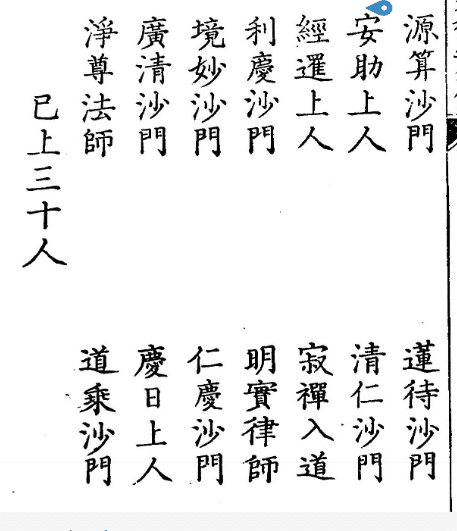 源算沙門 蓮待沙門
安助上人 清仁沙門
經暹上人 寂禪入道
利慶沙門 明實律師
境妙沙門 仁慶沙門
廣清沙門 慶日上人
淨尊法師 道乘沙門
已上三十人